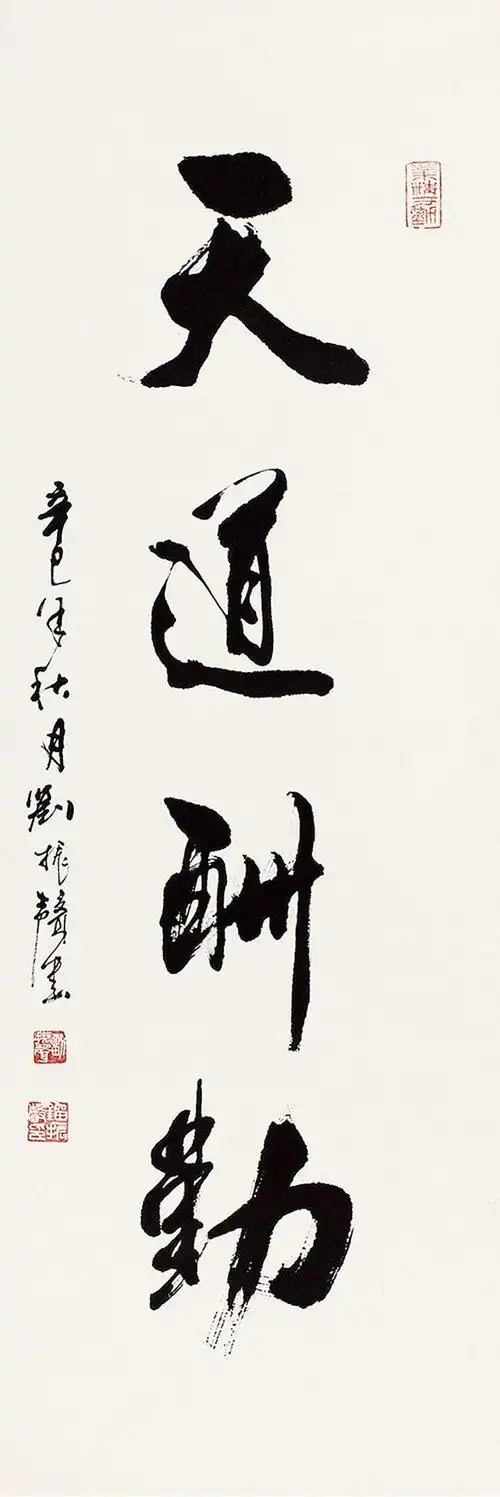 天道酬勤
辛巳年秋月劉振聲書